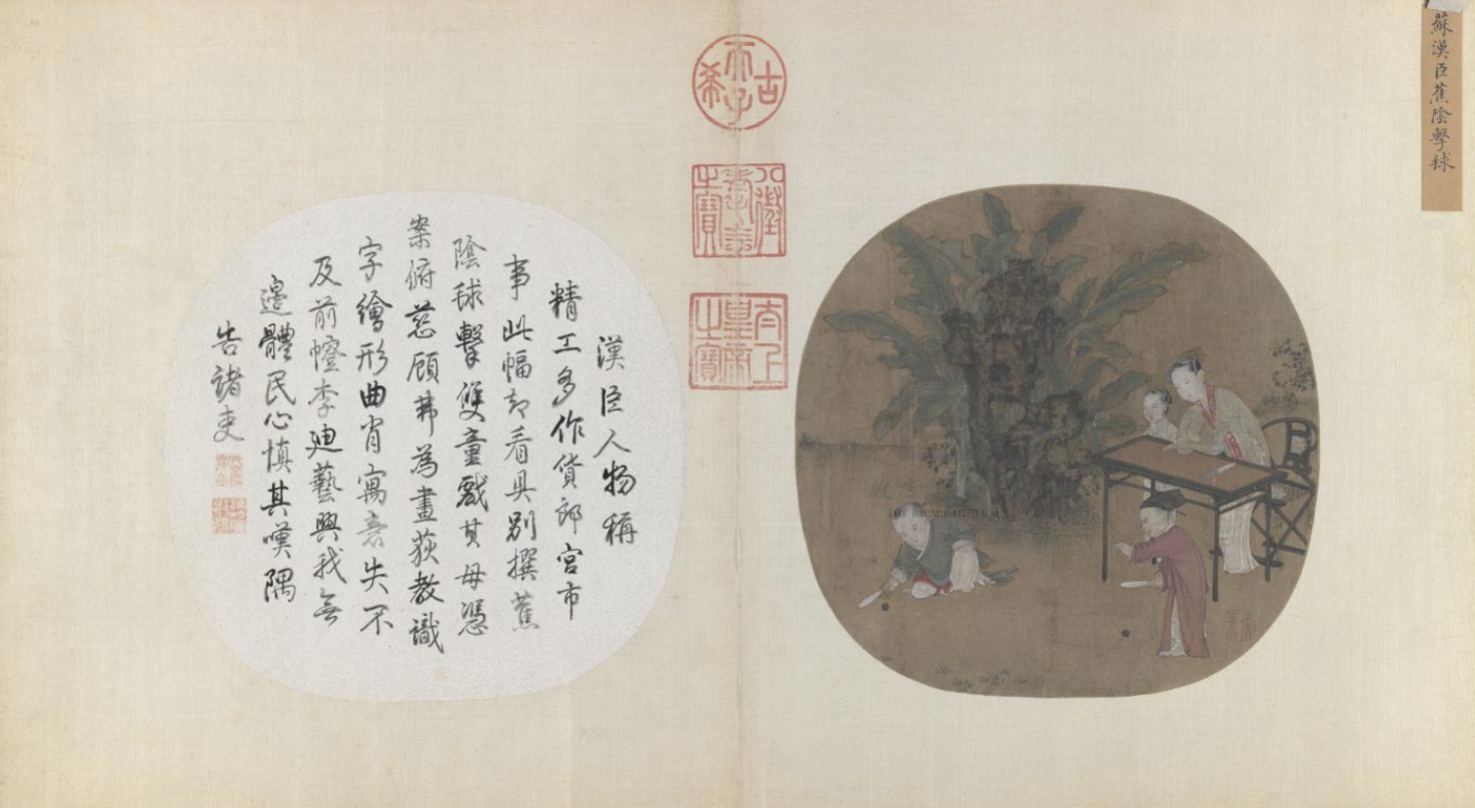 蘇漢臣蕉陰擊球
THE PALACE MUSEUM
古稀天子
八徵耄念之寶
太上皇帝之寶
漢臣人物稱
精工多作貨郎宮市
事此幅却看具別撰蕉
陰球擊雙童戲其母憑
案俯慈顧弗為畫荻教識
字繪形曲肖寓意失不
及前幨李廸藝興我無
邊體民心慎其嘆隅
告諸吏